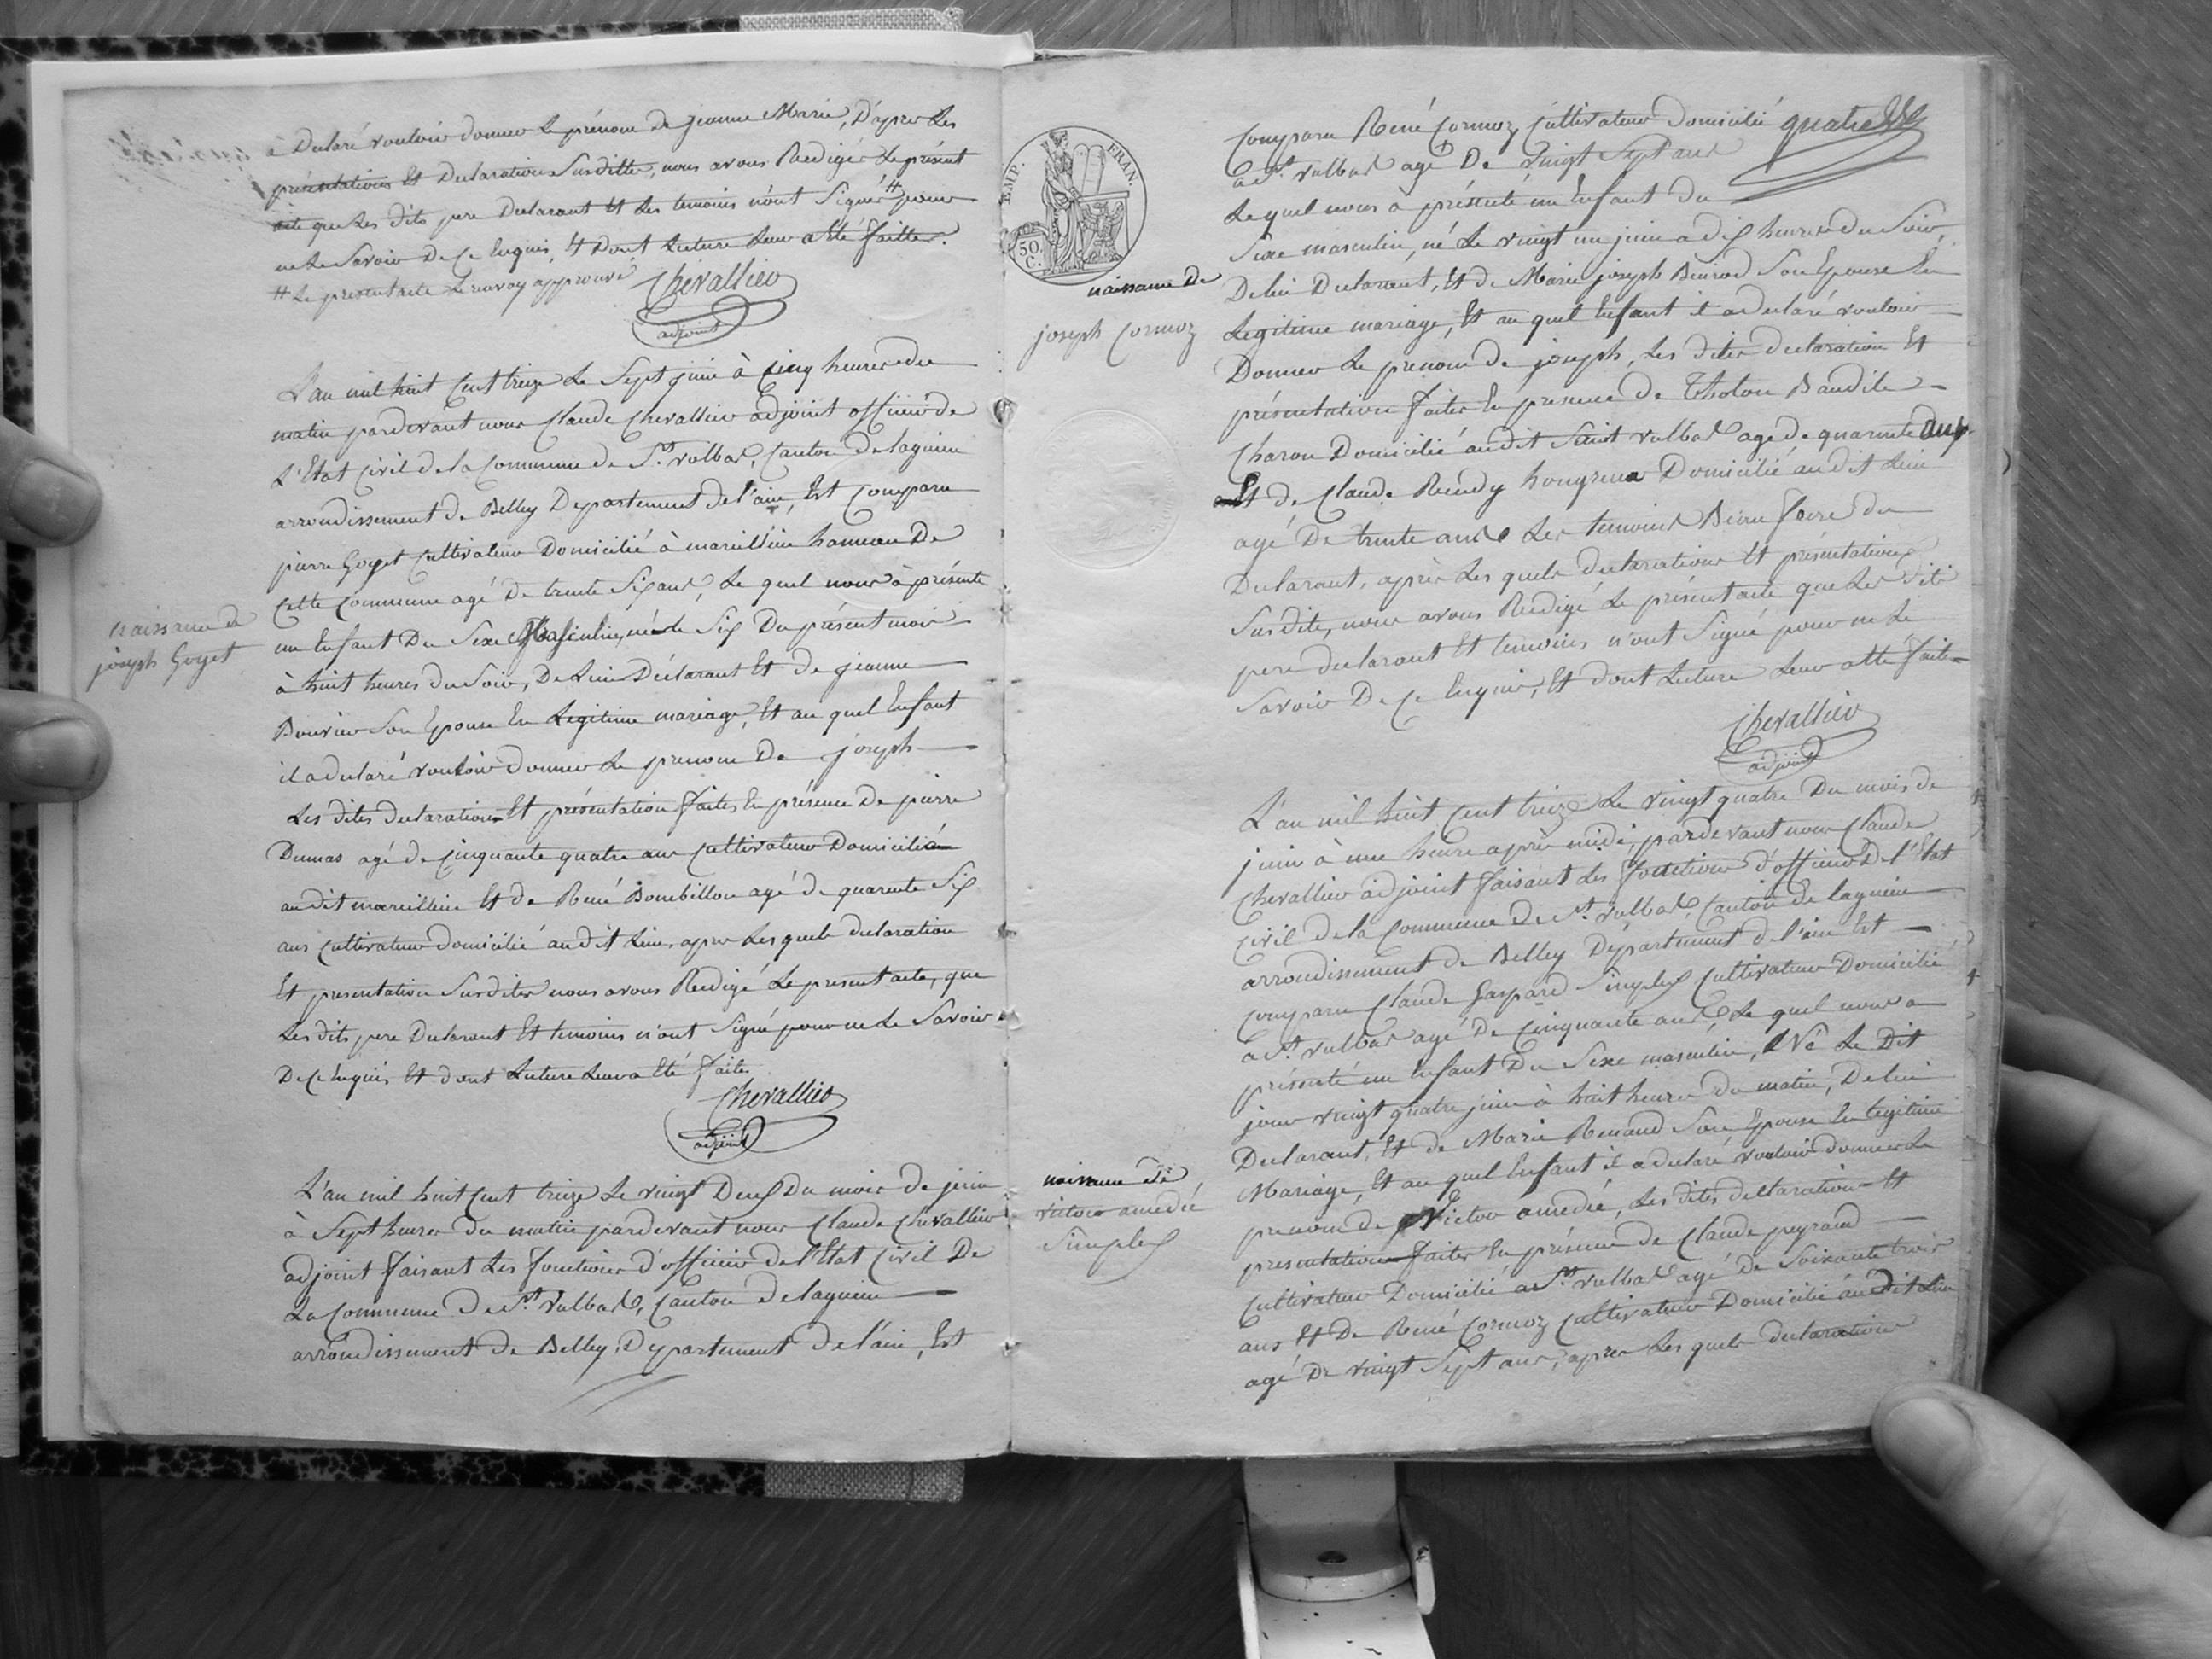 à Declaré vouloir donner Le prénom de jeanne Marie, D'apres Les
présentations Et Declarations Susdittes, nous avons Reedigés Le présent
acte que Les dits pere Declarant Et Les temoins n'ont Signés # pour
ne Le Savoir De Ce Enquis, Et Dont Lecture Leur a Eté faitte.
# Le present acte Le renvoy approuvé
Chevallier
adjoint
L'an mil huit Cent treize Le Sept juin à Cinq heures du
matin pardevant nous Claude Chevallier adjoint officier de
L'Etat Civil de la Commune de St. Vulbas, Canton de lagnieu
arrondissement de Belley Departement de l'ain, Est Comparu
pierre Goyet Cultivateur Domicilié à marcillieu hameau De
Cette Commune agé De trente Six ans, Le quel nous à présenté
un Enfant Du Sexe Masculin, né le Six Du présent mois
à huit heures du Soir, De Lui Déclarant Et de jeanne
Bouvier Son Epouse En Legitime mariage, Et au quel Enfant
il a declaré vouloir donner Le prenom De joseph
Les dites declarations Et présentation faites En présence De pierre
Dumas agé de Cinquante quatre ans Cultivateur Domicilié
au dit marcillieu Et de René Bombillon agé de quarente Six
ans Cultivateur domicilié audit Lieu, apres Les quels declaration
Et presentation Susdites nous avons Reedigé Le present acte, que
Les dits pere Declarant Et temoins n'ont Signé pour ne Le Savoir
De Ce Enquis Et dont Lecture Leur a Eté faite.
Chevallier
adjoint
naissance de
joseph Goyet
L'an mil huit Cent treize Le vingt Deux Du mois de juin
à Sept heures du matin pardevant nous Claude Chevallier
adjoint faisant Les fonctions d'officier de l'Etat Civil De
La Commune De St. Vulbas, Canton de lagnieu
arrondissement de Belley, Departement de l'ain, Est
EMP. FRAN.
50.
C.
quatre
Comparu René Cormoz Cultivateur Domicilié
a St. vulbas agé De vingt Sept ans
Le quel nous à présenté un Enfant du
Sexe masculin, né Le vingt un juin a dix heures du Soir,
De lui Declarant, Et de Marie joseph Son Epouse En
Legitime mariage, Et au quel Enfant il a declaré vouloir
Donner Le prenom de joseph, Les dites declaration Et
présentation faites En presence de Tholon Baudile
Charon Domicilié audit Saint vulbas agé de quarente deux
Et de Claude Remdy hongreur Domicilié au dit Lieu
agé De trente ans Les temoins du
Declarant, après Les quels declarations Et présentations
Susdite, nous avons Reedigé Le présent acte que Les dits
pere declarant Et temoins n'ont Signé pour ne Le
Savoir De Ce Enquis, Et dont Lecture Leur a Eté faite
Chevallier
adjoint
naissance De
joseph Cormoz
L'an mil huit Cent treize Le vingt quatre Du mois de
juin à une heure après midi, pardevant nous Claude
Chevallier adjoint faisant Les fonctions d'officier De l'Etat
Civil de la Commune De St. vulbas, Canton de lagnieu
arrondissement de Belley Département de l'ain Est
Comparu Claude Gaspard Simplex Cultivateur Domicilié
a St. vulbas agé De Cinquante ans, Le quel nous a
présenté un Enfant Du Sexe masculin, Né Le Dit
jour vingt quatre juin à huit heures du matin, De lui
Declarant, Et de Marie Renaud Son Epouse En legitime
Mariage, Et au quel Enfant il a declaré vouloir donner Le
prenom de Victor amedée, Les dites declaration Et
presentation faites En présence de Claude peyraud
Cultivateur Domicilié a St. vulbas agé de Soixante trois
ans Et De René Cormoz Cultivateur Domicilié au dit Lieu
agé De vingt Sept ans, apres Les quels declaration
naissance de
victor amedée
Simplex